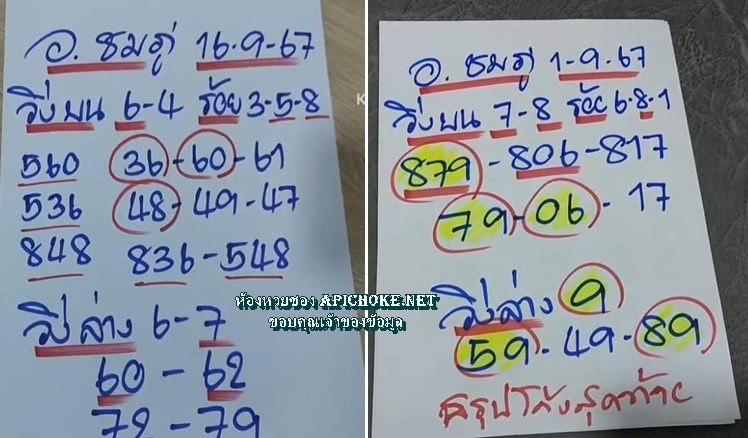 อ. ชมภู่ 16.9.67
วิ่งบน 6-4 ร้อย 3-5-8
560 36-60-61
536 48-49-47
848 836-548
วิ่งล่าง 6-7
60-62
72-79
ห้องหวยซอง APICHOKE.NET
ขอบคุณเจ้าของข้อมูล
อ. ชมภู่ 1-9-67
วิ่งบน 7-8 ร้อย 6.8-1
879-806-817
79-06-17
วิ่งล่าง 9
59-49-89
สรุปโค้งสุดท้าย